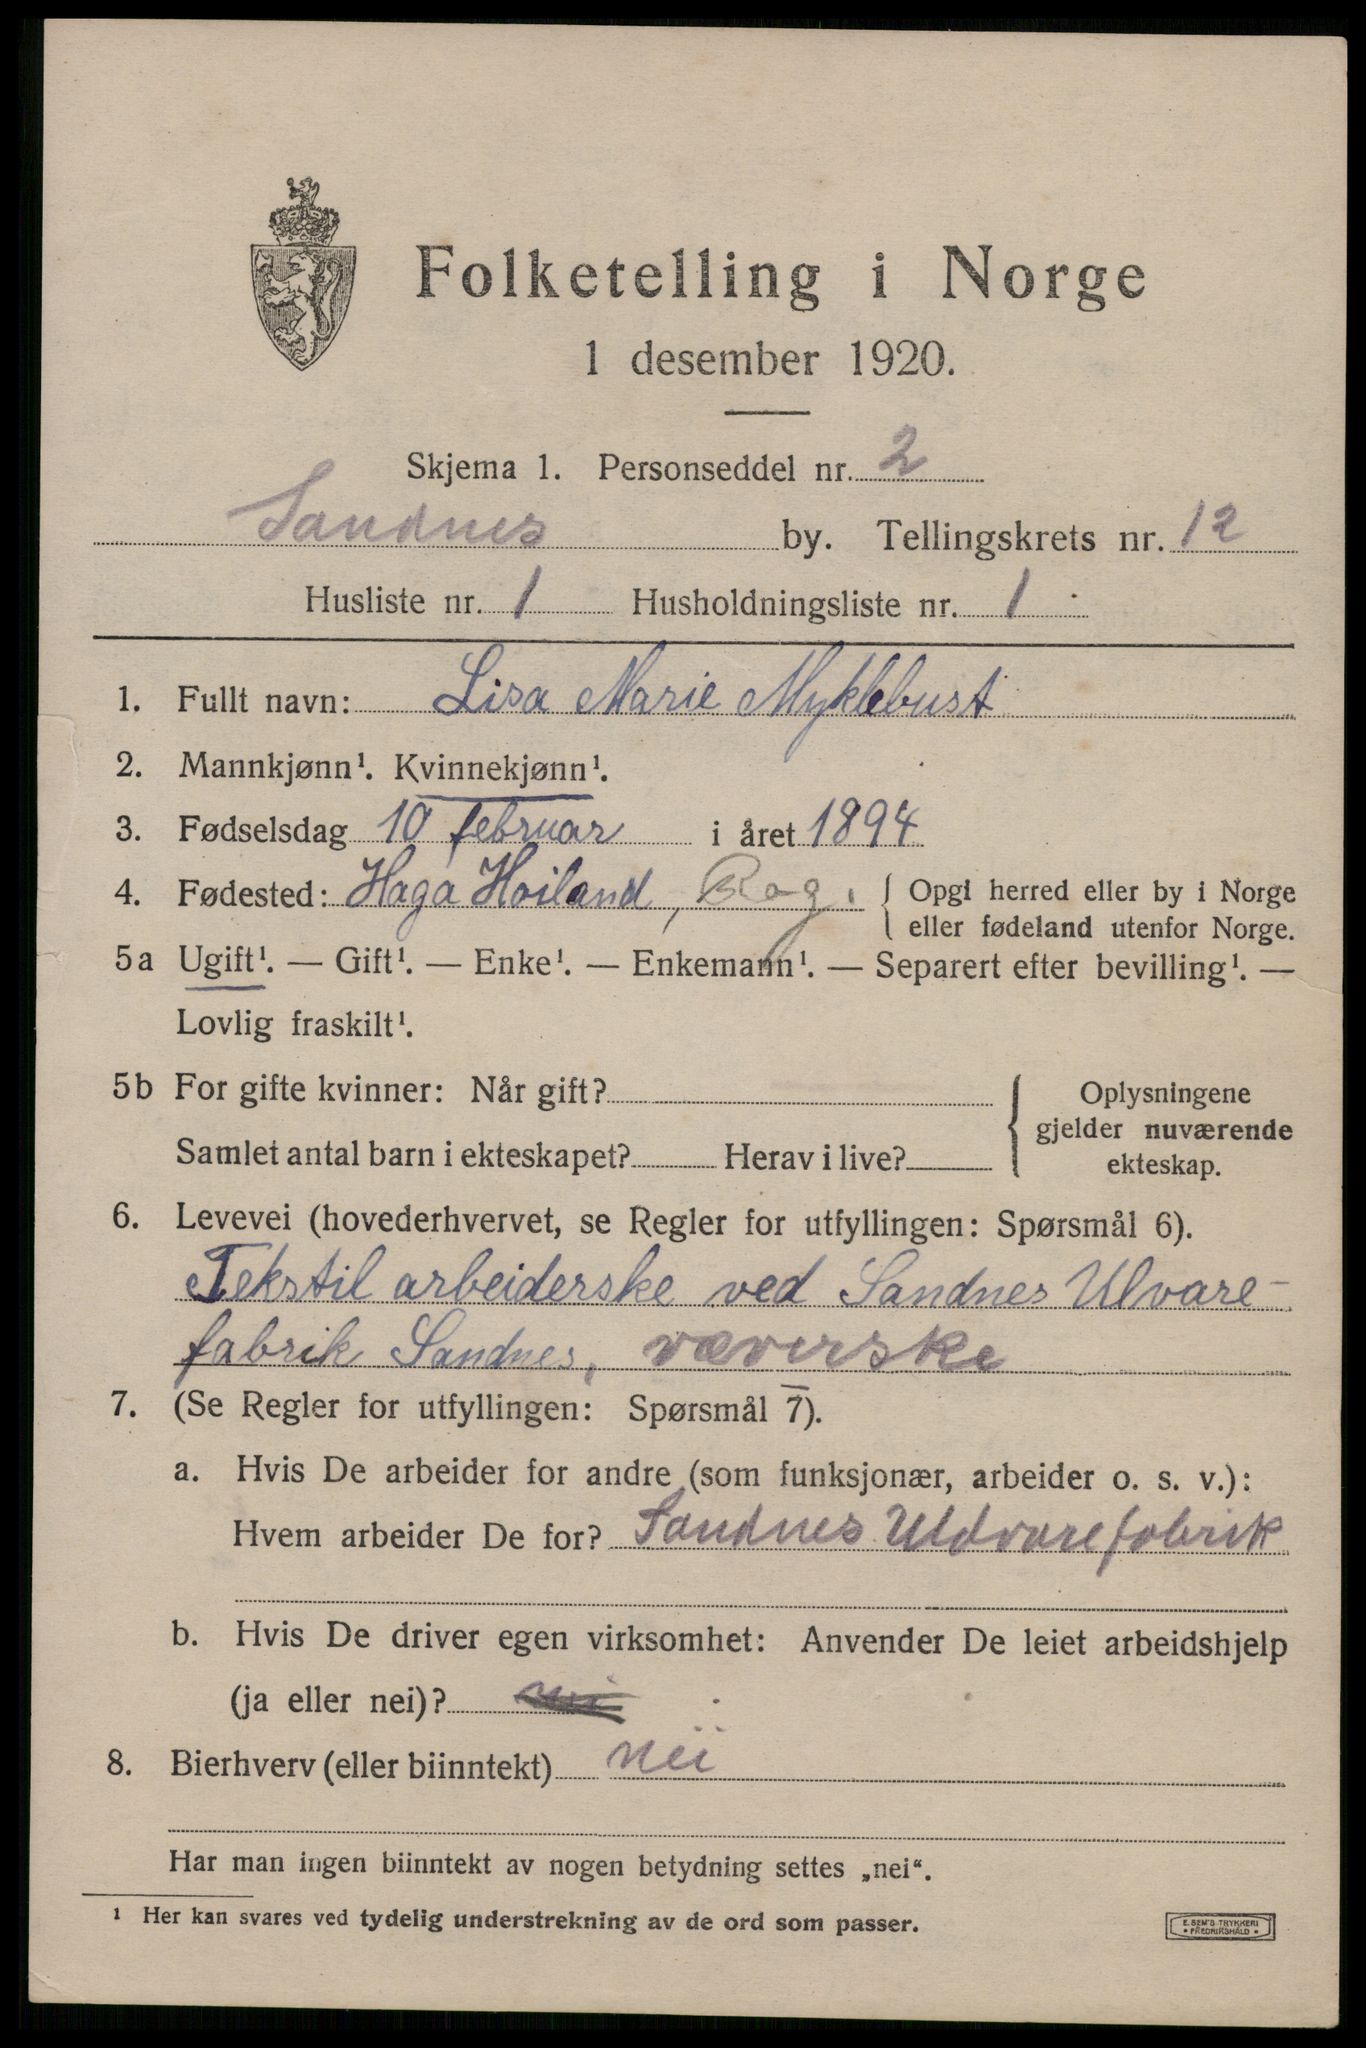 Folketelling i Norge
1 desember 1920.
Skjema 1. Personseddel nr. 2
Sandnes by. Tellingskrets nr. 12
Husliste nr. 1 Husholdningsliste nr. 1
1. Fullt navn: Lisa Marie Myklebust
2. Mannkjønn¹. Kvinnekjønn¹.
3. Fødselsdag 10 februar i året 1894
4. Fødested: Haga Hoiland, Rog. { Opgi herred eller by i Norge
eller fødeland utenfor Norge.
5a Ugift¹. — Gift¹. — Enke¹. — Enkemann¹. — Separert efter bevilling¹. —
Lovlig fraskilt¹.
5b For gifte kvinner: Når gift? Oplysningene
gjelder nuværende
Samlet antal barn i ekteskapet? Herav i live? ekteskap.
6. Levevei (hovederhvervet, se Regler for utfyllingen: Spørsmål 6).
Tekstil arbeiderske ved Sandnes Ulvare-
fabrik Sandnes, væverske
7. (Se Regler for utfyllingen: Spørsmål 7).
a. Hvis De arbeider for andre (som funksjonær, arbeider o. s. v.):
Hvem arbeider De for? Sandnes Uldvarefabrik
b. Hvis De driver egen virksomhet: Anvender De leiet arbeidshjelp
(ja eller nei)? nei
8. Bierhverv (eller biinntekt) nei
Har man ingen biinntekt av nogen betydning settes „nei“.
¹ Her kan svares ved tydelig understrekning av de ord som passer.
E. SEM'S TRYKKERI
• FREDRIKSHALD •